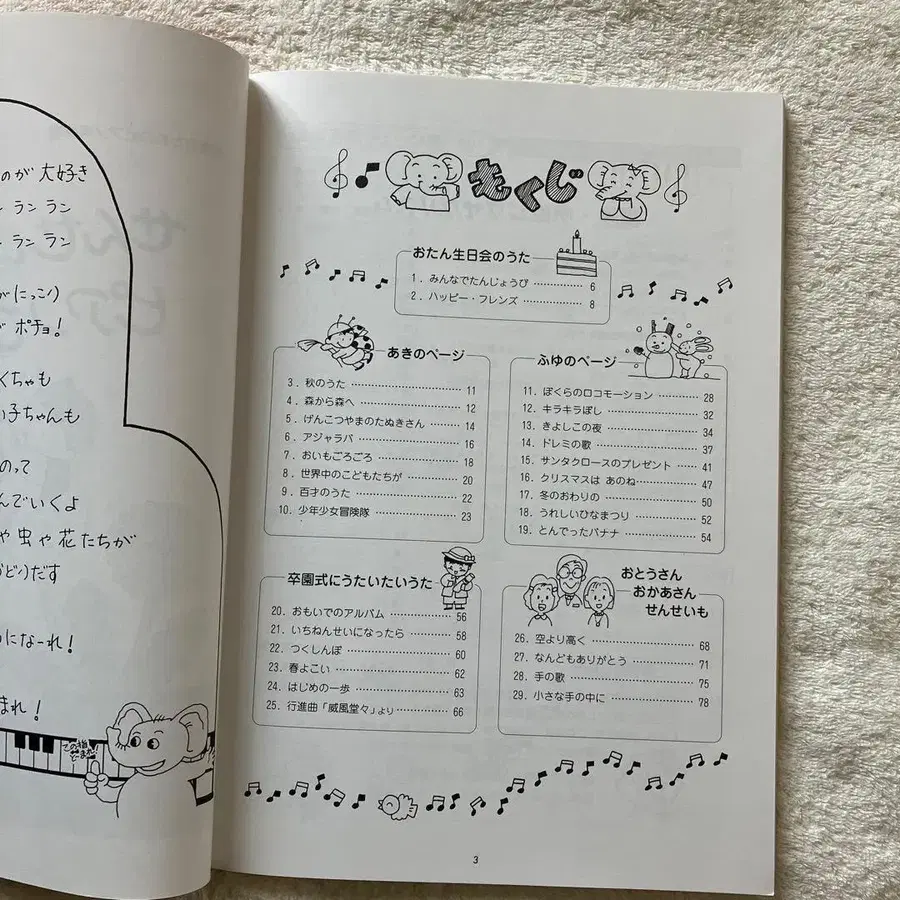 のが 大好き
ラン ラン
ラン ラン
が(にっこ)
が ポチョ!
くちゃも
い子ちゃんも
のって
んでいくよ
や 虫 や 花 たちが
だす
になーれ!
まれ!
もくじ
おたん生日会のうた
1. みんなでたんじょうび ………… 6
2. ハッピー・フレンズ ………… 8
あきのページ
3. 秋のうた ………… 11
4. 森から森へ ………… 12
5. げんこつやまのたぬきさん ………… 14
6. アジャラパ ………… 16
7. おいもごろごろ ………… 18
8. 世界中のこどもたちが ………… 20
9. 百才のうた ………… 22
10. 少年少女冒険隊 ………… 23
ふゆのページ
11. ぼくらのロコモーション ………… 28
12. キラキラぼし ………… 32
13. きよしこの夜 ………… 34
14. ドレミの歌 ………… 37
15. サンタクロースのプレゼント …… 41
16. クリスマスは あのね ………… 47
17. 冬のおわりの ………… 50
18. うれしいひなまつり ………… 52
19. とんでったバナナ ………… 54
卒園式にうたいたいうた
20. おもいでのアルバム ………… 56
21. いちねんせいになったら ………… 58
22. つくしんぼ ………… 60
23. 春よこい ………… 62
24. はじめの一歩 ………… 63
25. 行進曲「威風堂々」より ………… 66
おとうさん
おかあさん
せんせいも
26. 空より高く ………… 68
27. なんどもありがとう ………… 71
28. 手の歌 ………… 75
29. 小さな手の中に ………… 78
3